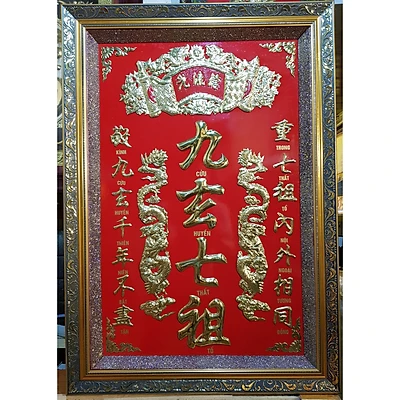 德流光
九
CỬU
玄
HUYỀN
七
THẤT
祖
TỔ
重
TRỌNG
七
THẤT
祖
TỔ
內
NỘI
外
NGOẠI
相
TƯƠNG
同
ĐỒNG
敬
KÍNH
九
CỬU
玄
HUYỀN
千
THIÊN
年
NIÊN
不
BẤT
盡
TẬN